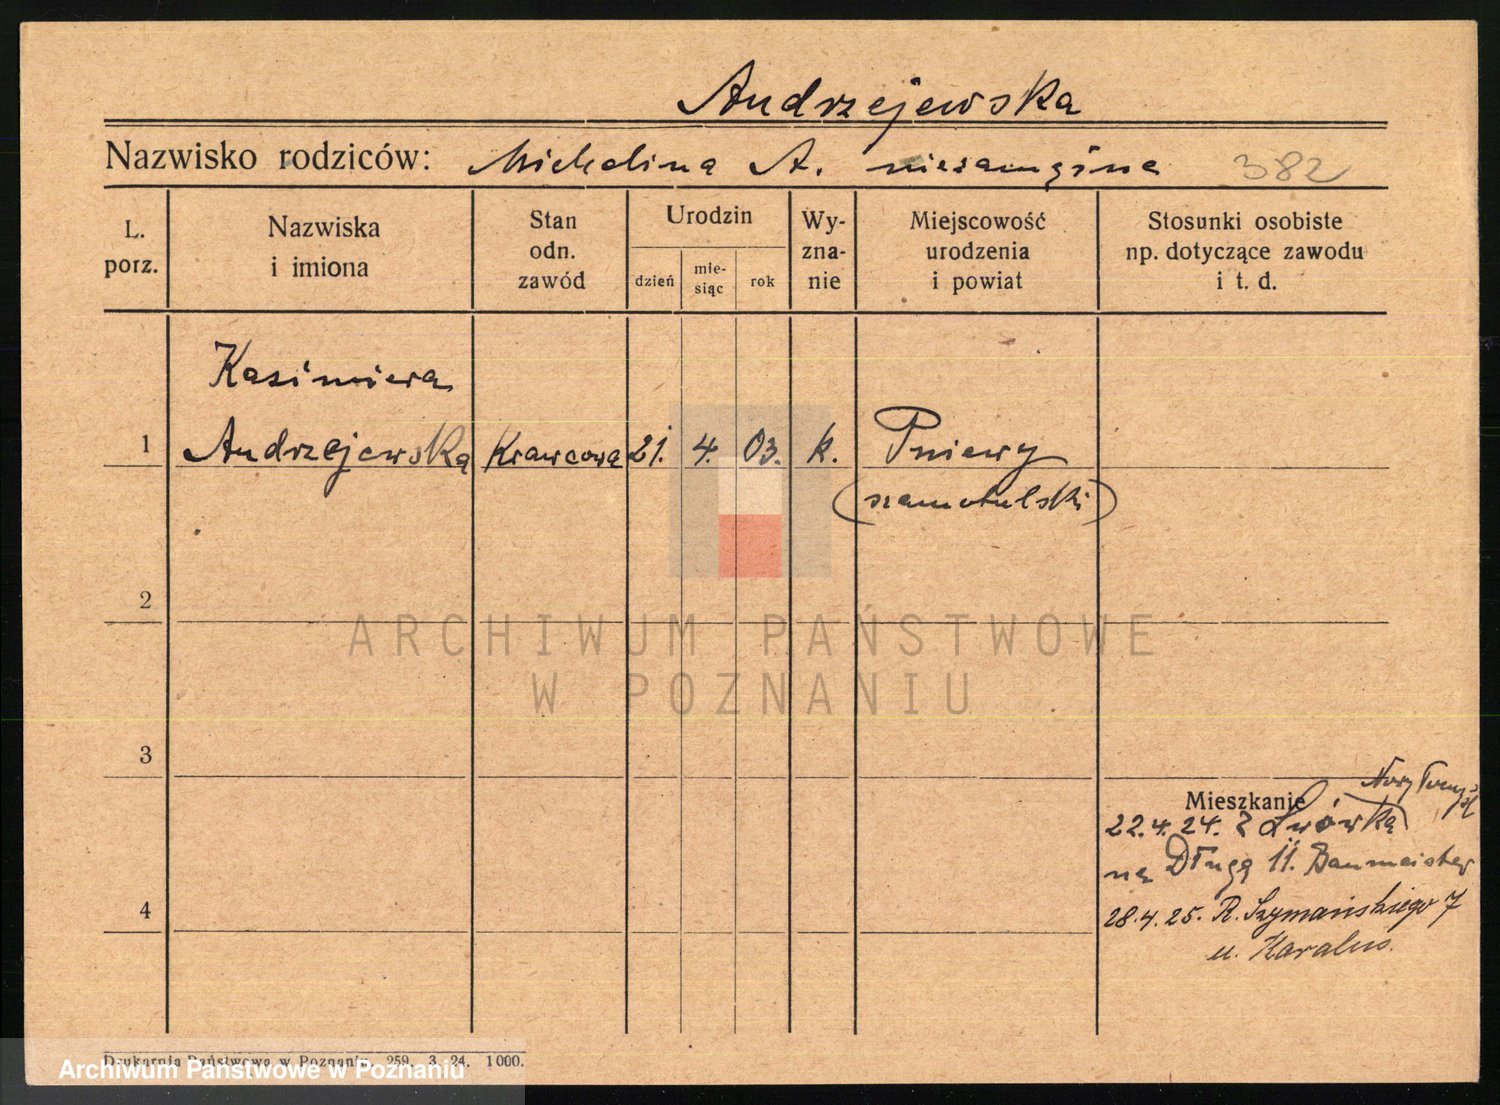 Andrzejewska
Nazwisko rodziców: Michalina A. niezamężna 382
L. porz.
Nazwiska i imiona
Stan odn. zawód
Urodzin
dzień
mie-siąc
rok
Wy-zna-nie
Miejscowość urodzenia i powiat
Stosunki osobiste np. dotyczące zawodu i t. d.
Kazimiera
1 Andrzejewska Krawcowa 21. 4. 03. k. Pniewy
(szamotulski)
2
ARCHIWUM PAŃSTWOWE
W POZNANIU
3
Nowy Tomyśl
Mieszkanie
22.4.24. z Lwówka
na Długą 11. Baumeister
4
28.4.25. R. Szymańskiego 7
u. Karalus.
Drukarnia Państwowa w Poznaniu. 259. 3. 24. 1000.
Archiwum Państwowe w Poznaniu